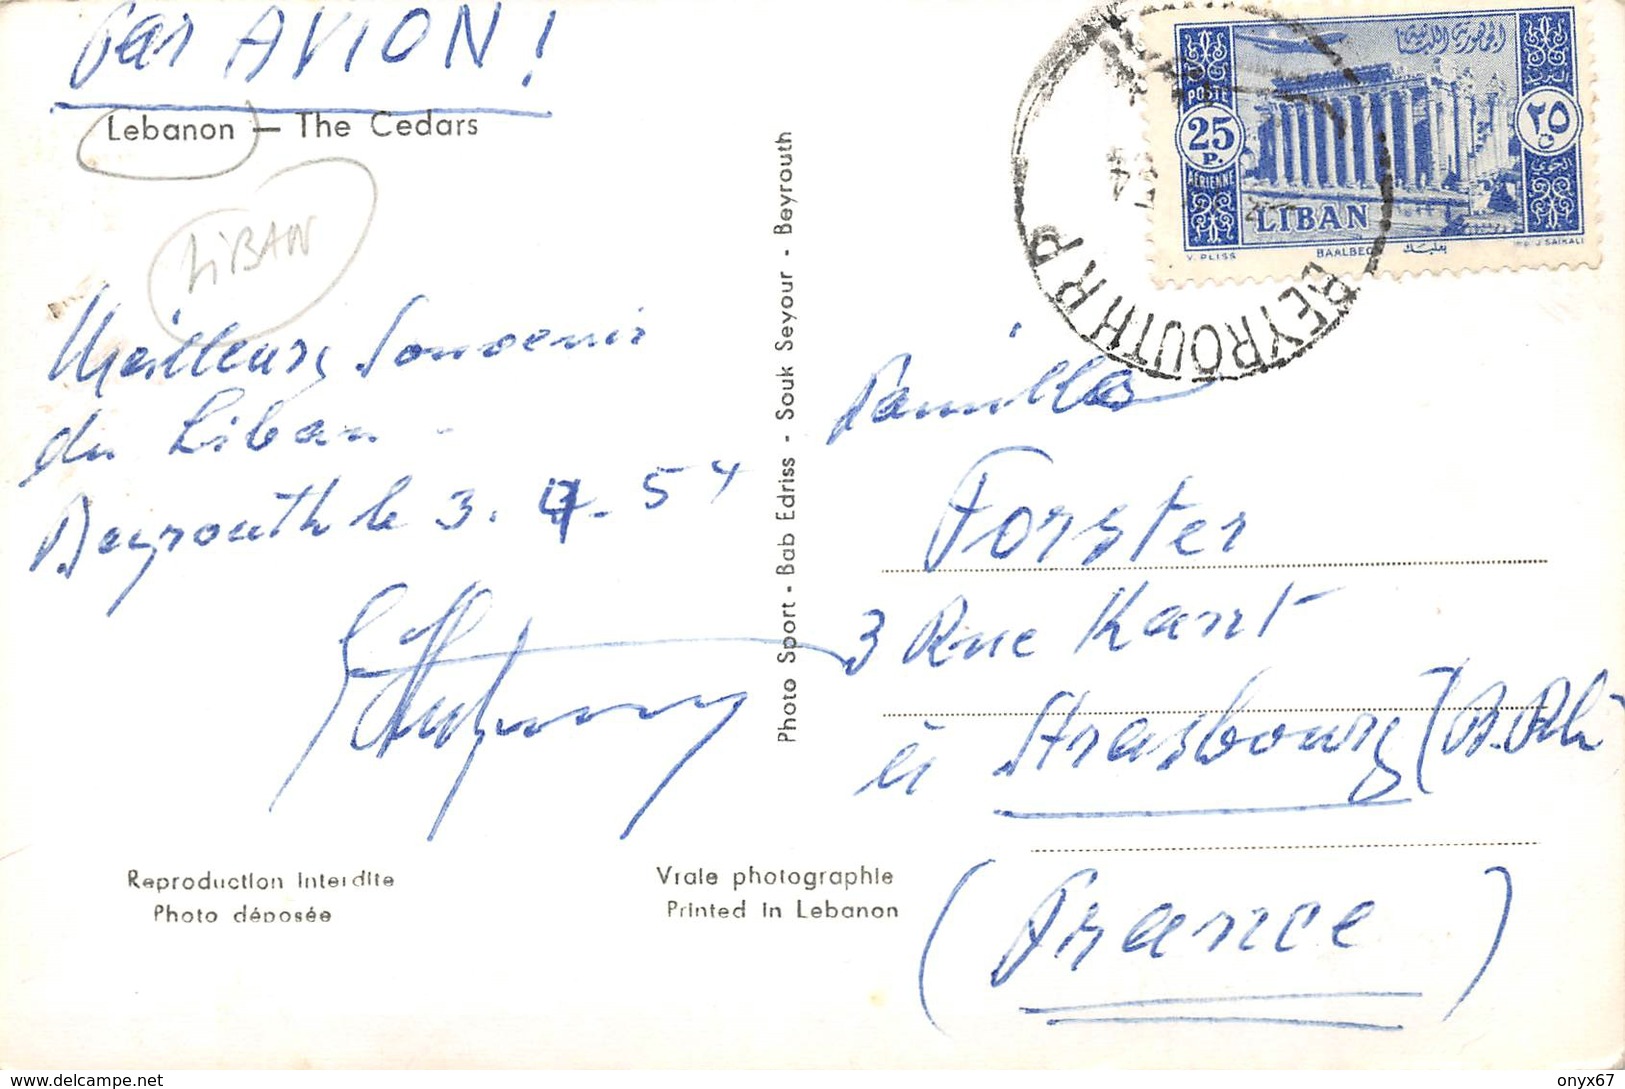 Par AVION !
Lebanon — The Cedars
LiBAN
Meilleurs Souvenir
du Liban -
Beyrouth le 3. 4. 54
Photo Sport - Bab Edriss - Souk Seyour - Beyrouth
الجمهورية اللبنانية
POSTE
25 P.
AÉRIENNE
٢٥
ق
LIBAN
V. PLISS BAALBECK بعلبك Imp. J. SAIKALI
BEYROUTH R P
Famille
Forster
3 Rue Kant
à Strasbourg (B. Rh)
(France)
Reproduction interdite
Photo déposée
Vraie photographie
Printed in Lebanon
delcampe.net
onyx67